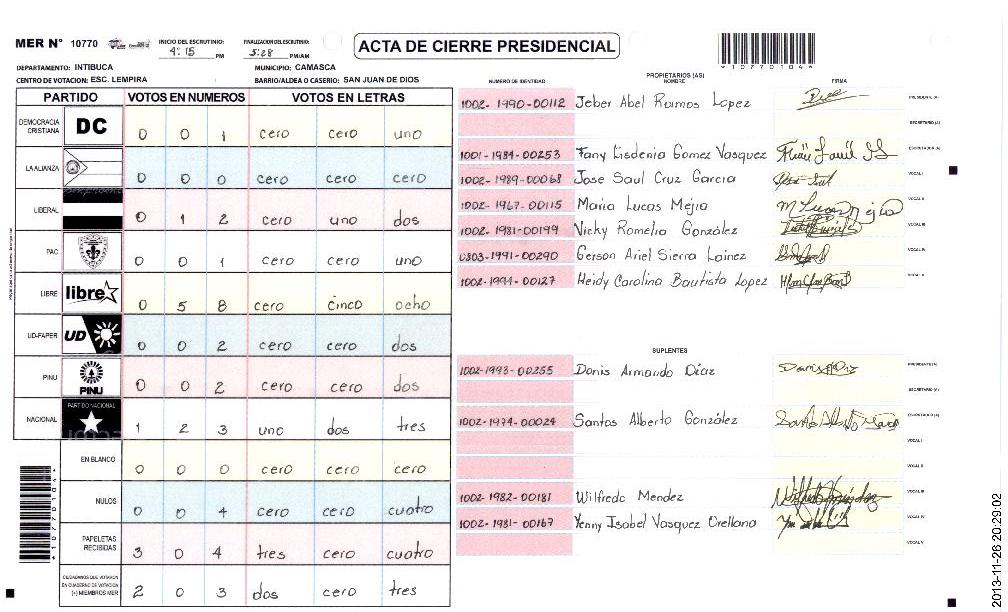 MER N° 10770
INICIO DEL ESCRUTINIO: 4:15 PM
FINALIZACION DEL ESCRUTINIO: 5:28 PM/AM
ACTA DE CIERRE PRESIDENCIAL
*10770104*
DEPARTAMENTO: INTIBUCA
MUNICIPIO: CAMASCA
CENTRO DE VOTACION: ESC. LEMPIRA
BARRIO/ALDEA O CASERIO: SAN JUAN DE DIOS
PARTIDO VOTOS EN NUMEROS VOTOS EN LETRAS
DEMOCRACIA CRISTIANA DC 0 0 1 cero cero uno
LA ALIANZA 0 0 0 cero cero cero
LIBERAL 0 1 2 cero uno dos
PAC 0 0 1 cero cero uno
LIBRE libre 0 5 8 cero cinco ocho
UD-FAPER UD 0 0 2 cero cero dos
PINU PINU 0 0 2 cero cero dos
NACIONAL PARTIDO NACIONAL 1 2 3 uno dos tres
EN BLANCO 0 0 0 cero cero cero
NULOS 0 0 4 cero cero cuatro
PAPELETAS RECIBIDAS 3 0 4 tres cero cuatro
CIUDADANOS QUE VOTARON EN CUADERNO DE VOTACION (+) MIEMBROS MER 2 0 3 dos cero tres
*10770104*
NUMERO DE IDENTIDAD PROPIETARIOS (AS) NOMBRE FIRMA
1002-1990-00112 Jeber Abel Ramos Lopez PRESIDENTE (A)
SECRETARIO (A)
1001-1984-00253 Fany Lisdenia Gomez Vasquez ESCRUTADOR (A)
1002-1989-00068 Jose Saul Cruz Garcia VOCAL I
1002-1967-00115 Maria Lucas Mejia VOCAL II
1002-1981-00199 Nicky Romelia González VOCAL III
0303-1991-00290 Gerson Ariel Sierra Lainez VOCAL IV
1002-1994-00127 Heidy Carolina Bautista Lopez VOCAL V
SUPLENTES
1002-1993-00255 Danis Armando Díaz PRESIDENTE (A)
SECRETARIO (A)
1002-1974-00024 Santos Alberto González ESCRUTADOR (A)
VOCAL I
VOCAL II
1002-1982-00181 Wilfredo Mendez VOCAL III
1002-1981-00167 Yenny Isabel Vasquez Orellana VOCAL IV
VOCAL V
2013-11-26 20:29:02